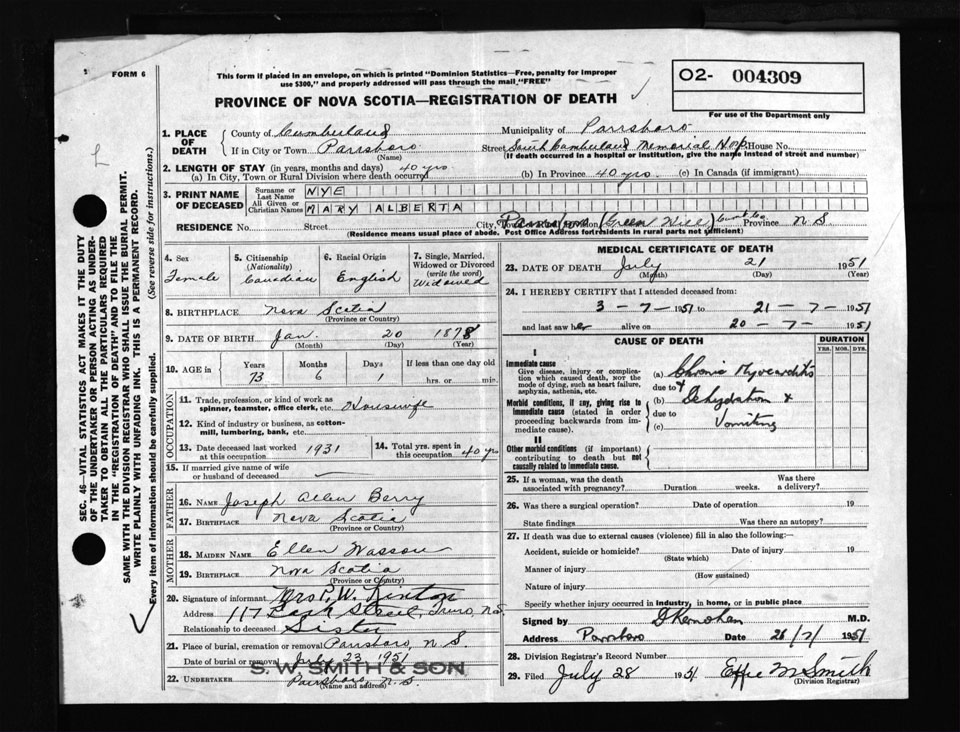 FORM 6
This form if placed in an envelope, on which is printed "Dominion Statistics—Free, penalty for improper
use $300," and properly addressed will pass through the mail "FREE"
O2- 004309
For use of the Department only
PROVINCE OF NOVA SCOTIA—REGISTRATION OF DEATH
1. PLACE OF DEATH County of Cumberland Municipality of Parrsboro
If in City or Town Parrsboro (Name) Street South Cumberland Memorial Hosp. House No.
(If death occurred in a hospital or institution, give the name instead of street and number)
2. LENGTH OF STAY (in years, months and days)
(a) In City, Town or Rural Division where death occurred 40 yrs (b) In Province 40 yrs. (c) In Canada (if immigrant)
3. PRINT NAME OF DECEASED Surname or Last Name NYE
All Given or Christian Names MARY ALBERTA
RESIDENCE No. Street City, Parrsboro (Green Hill) Province N S
(Residence means usual place of abode. Post Office Address for residents in rural parts not sufficient)
4. Sex Female
5. Citizenship (Nationality) Canadian
6. Racial Origin English
7. Single, Married, Widowed or Divorced (write the word) Widowed
8. BIRTHPLACE Nova Scotia (Province or Country)
9. DATE OF BIRTH Jan. (Month) 20 (Day) 1878 (Year)
10. AGE in Years 73 Months 6 Days 1 If less than one day old hrs. or min.
OCCUPATION
11. Trade, profession or kind of work as spinner, teamster, office clerk, etc. Housewife
12. Kind of industry or business, as cotton-mill, lumbering, bank, etc.
13. Date deceased last worked at this occupation 1931
14. Total yrs. spent in this occupation 40 yrs
15. If married give name of wife or husband of deceased
FATHER
16. NAME Joseph Allen Berry
17. BIRTHPLACE Nova Scotia (Province or Country)
MOTHER
18. MAIDEN NAME Ellen Wasson
19. BIRTHPLACE Nova Scotia (Province or Country)
20. Signature of informant Mrs P. W. Linton
Address 117 Street, Truro, N.S.
Relationship to deceased Sister
21. Place of burial, cremation or removal Parrsboro, N S.
Date of burial or removal July 23 1951
S. W. SMITH & SON
22. UNDERTAKER Parrsboro, N.S. (Name and address)
MEDICAL CERTIFICATE OF DEATH
23. DATE OF DEATH July (Month) 21 (Day) 1951 (Year)
24. I HEREBY CERTIFY that I attended deceased from:
3 - 7 - 1951 to 21 - 7 - 1951
and last saw her alive on 20 - 7 - 1951
CAUSE OF DEATH
DURATION
YRS. MOS. DYS.
I
Immediate cause
Give disease, injury or complication which caused death, not the mode of dying, such as heart failure, asphyxia, asthenia, etc.
(a) Chronic Myocarditis
due to
Morbid conditions, if any, giving rise to immediate cause (stated in order proceeding backwards from immediate cause).
(b) Dehydration &
due to
(c) Vomiting
II
Other morbid conditions (if important) contributing to death but not causally related to immediate cause.
25. If a woman, was the death associated with pregnancy? Duration weeks. Was there a delivery?
26. Was there a surgical operation? Date of operation 19
State findings Was there an autopsy?
27. If death was due to external causes (violence) fill in also the following:
Accident, suicide or homicide? (State which) Date of injury 19
Manner of injury (How sustained)
Nature of injury
Specify whether injury occurred in industry, in home, or in public place
Signed by D Kernohan M.D.
Address Parrsboro Date 26/7/ 1951
28. Division Registrar's Record Number
29. Filed July 28 1951 Effie M Smith (Division Registrar)
SEC. 46—VITAL STATISTICS ACT MAKES IT THE DUTY
OF THE UNDERTAKER OR PERSON ACTING AS UNDER-
TAKER TO OBTAIN ALL THE PARTICULARS REQUIRED
IN THE "REGISTRATION OF DEATH" AND TO FILE THE
SAME WITH THE DIVISION REGISTRAR WHO SHALL ISSUE THE BURIAL PERMIT.
WRITE PLAINLY WITH UNFADING INK. THIS IS A PERMANENT RECORD.
Every item of information should be carefully supplied. (See reverse side for instructions.)